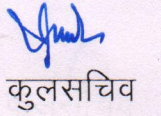 कुलसचिव